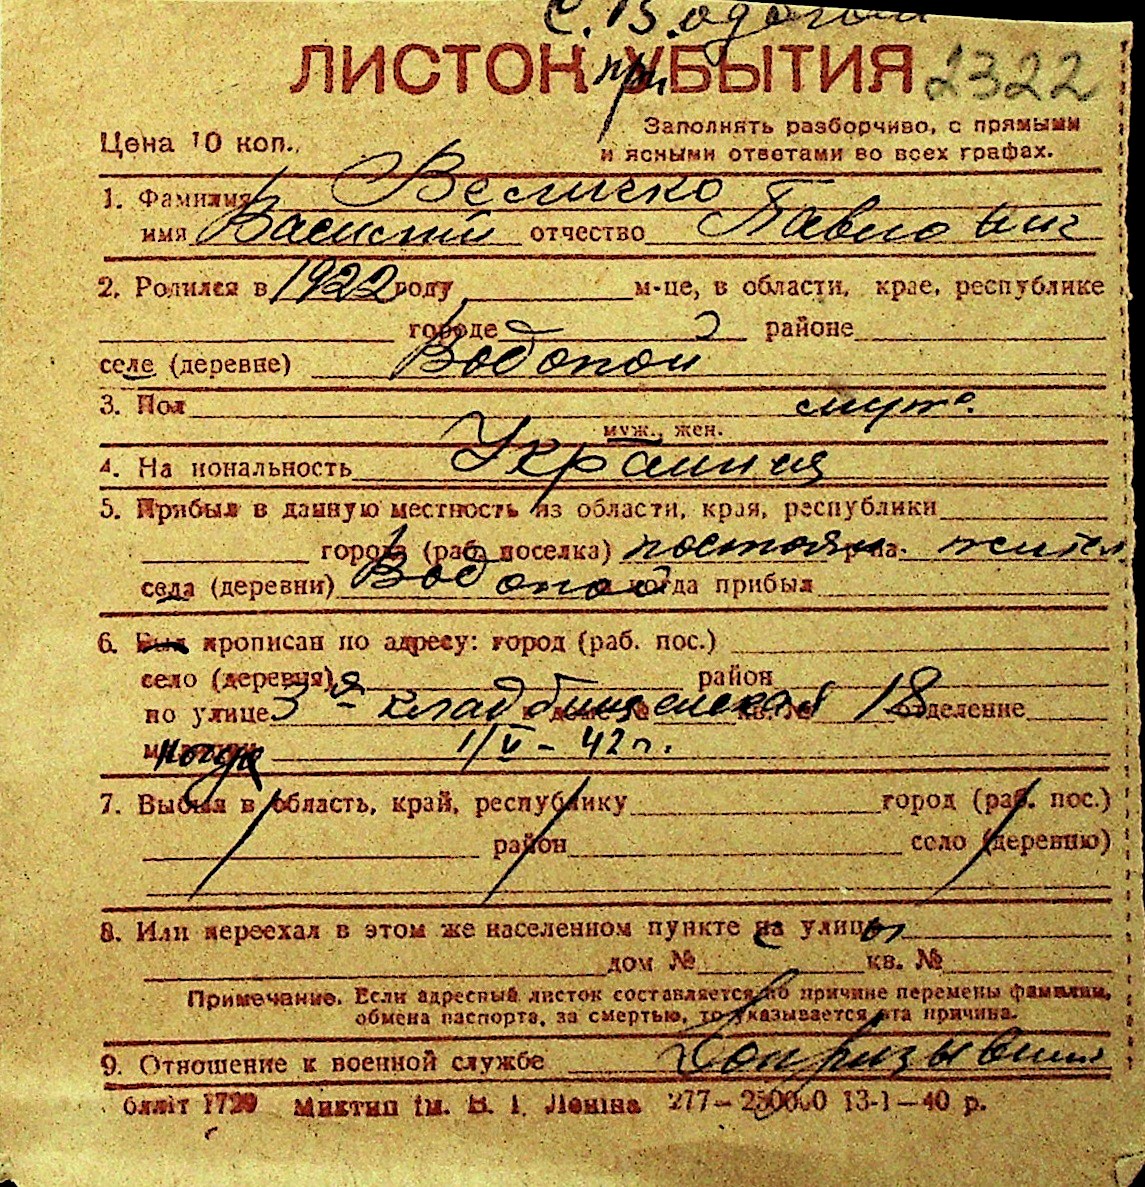 с. Водопой
ЛИСТОК УБЫТИЯ 2322
при
Цена 10 коп.
Заполнять разборчиво, с прямыми
и ясными ответами во всех графах.
1. Фамилия Величко
имя Василий отчество Павлович
2. Родился в 1922 году м-це, в области, крае, республике
городе районе
селе (деревне) Водопой
3. Пол муж.
муж., жен.
4. Национальность Украинец
5. Прибыл в данную местность из области, края, республики
города (раб. поселка) постоян. р-на. жител
села (деревни) Водопой и когда прибыл
6. Был прописан по адресу: город (раб. пос.)
село (деревня) район
по улице 3-я Кладбищенская дом № кв. № 18 отделение
милиции когда 1/V – 42 г.
7. Выбыл в область, край, республику город (раб. пос.)
район село (деревню)
8. Или переехал в этом же населенном пункте с улицы
дом № кв. №
Примечание. Если адресный листок составляется по причине перемены фамилии,
обмена паспорта, за смертью, то указывается эта причина.
9. Отношение к военной службе Допризывник
бляліт 1720 Миктип ім. В. І. Леніна 277—250000 13-1—40 р.